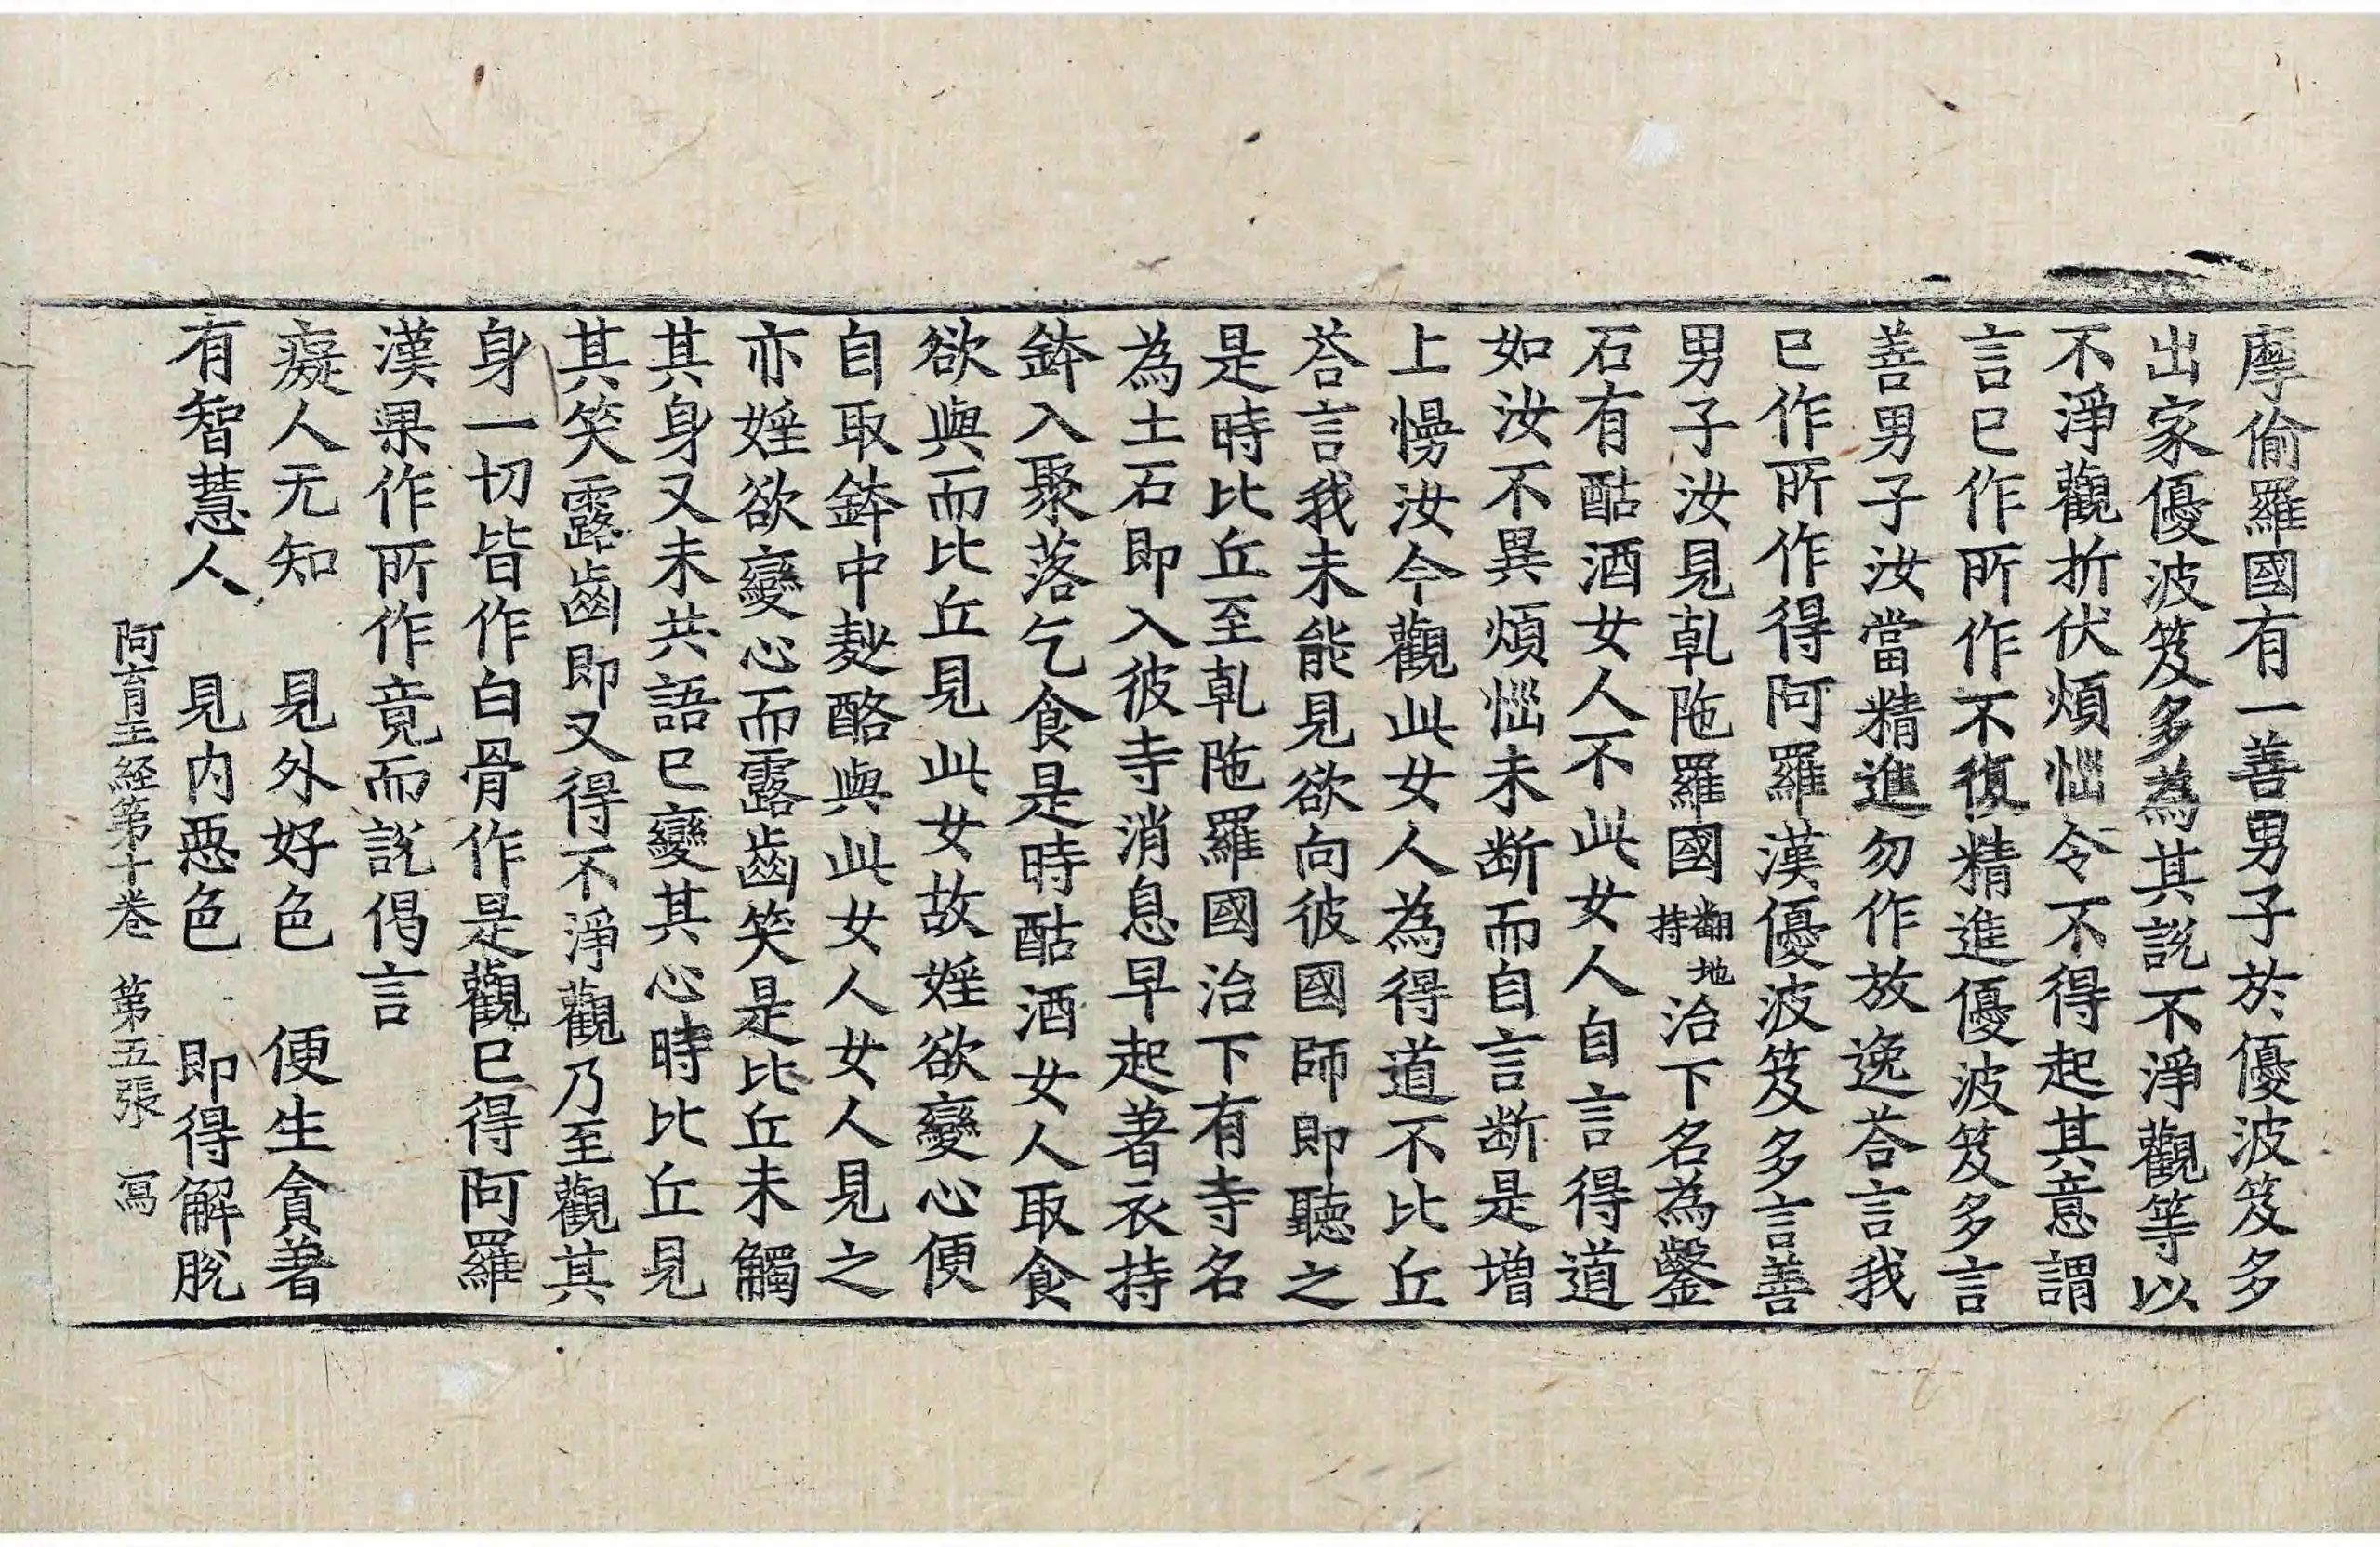 摩偷羅國有一善男子於優波笈多
出家優波笈多為其說不淨觀等以
不淨觀折伏煩惱令不得起其意謂
言已作所作不復精進優波笈多言
善男子汝當精進勿作放逸荅言我
已作所作得阿羅漢優波笈多言善
男子汝見乹陁羅國翻地持治下名為鑿
石有酤酒女人不此女人自言得道
如汝不異煩惱未断而自言断是增
上慢汝今觀此女人為得道不比丘
荅言我未能見欲向彼國師即聽之
是時比丘至乹陁羅國治下有寺名
為土石即入彼寺消息早起著衣持
鉢入聚落乞食是時酤酒女人取食
欲與而比丘見此女故婬欲變心便
自取鉢中麨酪與此女人女人見之
亦婬欲變心而露齒笑是比丘未觸
其身又未共語已變其心時比丘見
其笑露齒即又得不淨觀乃至觀其
身一切皆作白骨作是觀已得阿羅
漢果作所作竟而說偈言
癡人无知　見外好色　便生貪著
有智慧人　見内惡色　即得解脫
阿育王經第十卷　第五張　寫